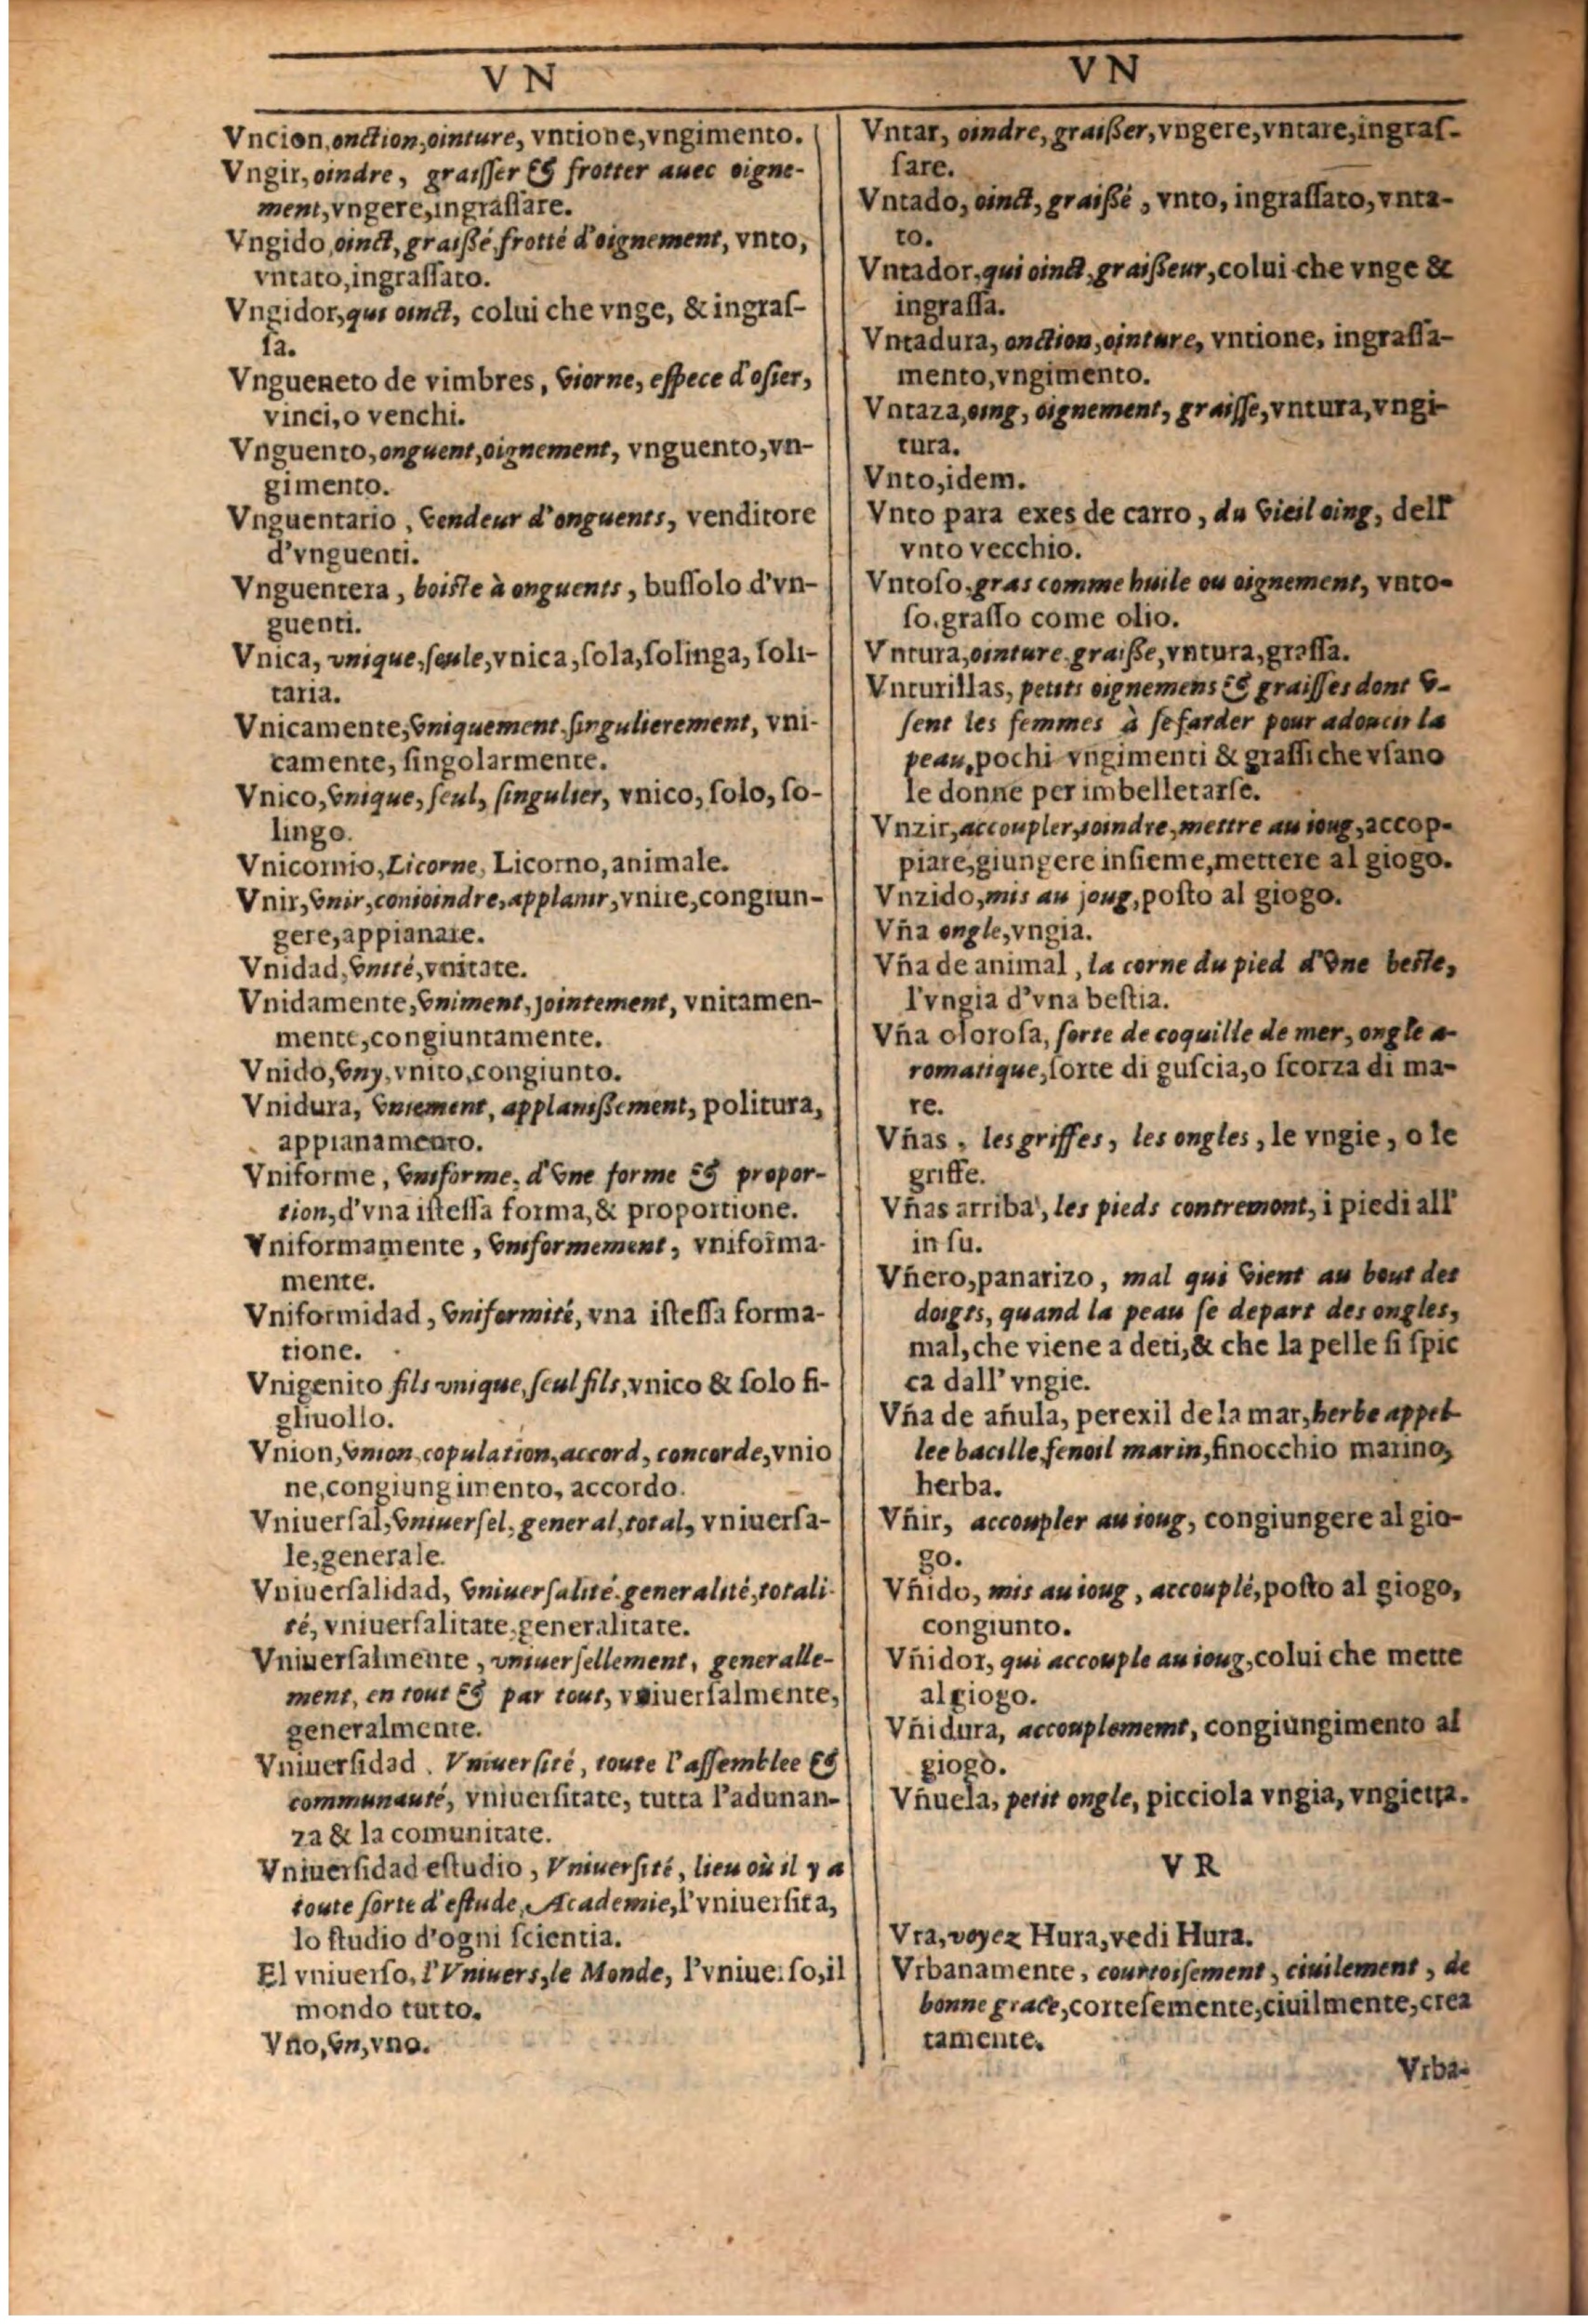 VN
Vncion, onction, ointure, vntione, vngimento.
Vngir, oindre, graisser & frotter auec oigne-
ment, vngere, ingrassare.
Vngido, oinct, graißé, frotté d'oignement, vnto,
vntato, ingraſſato.
Vngidor, qui oinct, colui che vnge, & ingraſ-
ſa.
Vngueneto de vimbres, viorne, eſpece d'oſier,
vinci, o venchi.
Vnguento, onguent, oignement, vnguento, vn-
gimento.
Vnguentario, vendeur d'onguents, venditore
d'vnguenti.
Vnguentera, boiſte à onguents, buſſolo d'vn-
guenti.
Vnica, vnique, ſeule, vnica, ſola, ſolinga, ſoli-
taria.
Vnicamente, vniquement, ſingulierement, vni-
camente, ſingolarmente.
Vnico, vnique, ſeul, ſingulier, vnico, ſolo, ſo-
lingo.
Vnicornio, Licorne, Licorno, animale.
Vnir, vnir, conioindre, applanir, vnire, congiun-
gere, appianare.
Vnidad, vnité, vnitate.
Vnidamente, vniment, jointement, vnitamen-
mente, congiuntamente.
Vnido, vny, vnito, congiunto.
Vnidura, vniement, applanißement, politura,
appianamento.
Vniforme, vniforme, d'vne forme & propor-
tion, d'vna iſteſſa forma, & proportione.
Vniformamente, vniformement, vniforma-
mente.
Vniformidad, vniformité, vna iſteſſa forma-
tione.
Vnigenito fils vnique, ſeul fils, vnico & ſolo fi-
gliuollo.
Vnion, vnion, copulation, accord, concorde, vnio
ne, congiungimento, accordo.
Vniuerſal, vniuerſel, general, total, vniuerſa-
le, generale.
Vniuerſalidad, vniuerſalité, generalité, totali-
té, vniuerſalitate, generalitate.
Vniuerſalmente, vniuerſellement, generalle-
ment, en tout & par tout, vniuerſalmente,
generalmente.
Vniuerſidad, Vniuerſité, toute l'aſſemblee &
communauté, vniuerſitate, tutta l'adunan-
za & la comunitate.
Vniuerſidad eſtudio, Vniuerſité, lieu où il y a
toute ſorte d'eſtude, Academie, l'vniuerſita,
lo ſtudio d'ogni ſcientia.
El vniuerſo, l'Vniuers, le Monde, l'vniuerſo, il
mondo tutto.
Vno, vn, vno.
VN
Vntar, oindre, graißer, vngere, vntare, ingraſ-
ſare.
Vntado, oinct, graißé, vnto, ingraſſato, vnta-
to.
Vntador, qui oinct, graißeur, colui che vnge &
ingraſſa.
Vntadura, onction, ointure, vntione, ingraſſa-
mento, vngimento.
Vntaza, oing, oignement, graiſſe, vntura, vngi-
tura.
Vnto, idem.
Vnto para exes de carro, du vieil oing, dell'
vnto vecchio.
Vntoſo, gras comme huile ou oignement, vnto-
ſo, graſſo come olio.
Vntura, ointure, graiße, vntura, graſſa.
Vnturillas, petits oignemens & graiſſes dont v-
ſent les femmes à ſe farder pour adoucir la
peau, pochi vngimenti & graſſi che vſano
le donne per imbelletarſe.
Vnzir, accoupler, ioindre, mettre au ioug, accop-
piare, giungere inſieme, mettere al giogo.
Vnzido, mis au joug, poſto al giogo.
Vña ongle, vngia.
Vña de animal, la corne du pied d'vne beſte,
l'vngia d'vna beſtia.
Vña oloroſa, ſorte de coquille de mer, ongle a-
romatique, ſorte di guſcia, o ſcorza di ma-
re.
Vñas, les griffes, les ongles, le vngie, o le
griffe.
Vñas arriba, les pieds contremont, i piedi all'
in ſu.
Vñero, panarizo, mal qui vient au bout des
doigts, quand la peau ſe depart des ongles,
mal, che viene a deti, & che la pelle ſi ſpic
ca dall' vngie.
Vña de añula, perexil de la mar, herbe appel-
lee bacille, fenoil marin, finocchio marino,
herba.
Vñir, accoupler au ioug, congiungere al gio-
go.
Vñido, mis au ioug, accouplé, poſto al giogo,
congiunto.
Vñidor, qui accouple au ioug, colui che mette
al giogo.
Vñidura, accouplememt, congiungimento al
giogo.
Vñuela, petit ongle, picciola vngia, vngietta.
VR
Vra, voyez Hura, vedi Hura.
Vrbanamente, courtoiſement, ciuilement, de
bonne grace, corteſemente, ciuilmente, crea
tamente.
Vrba-